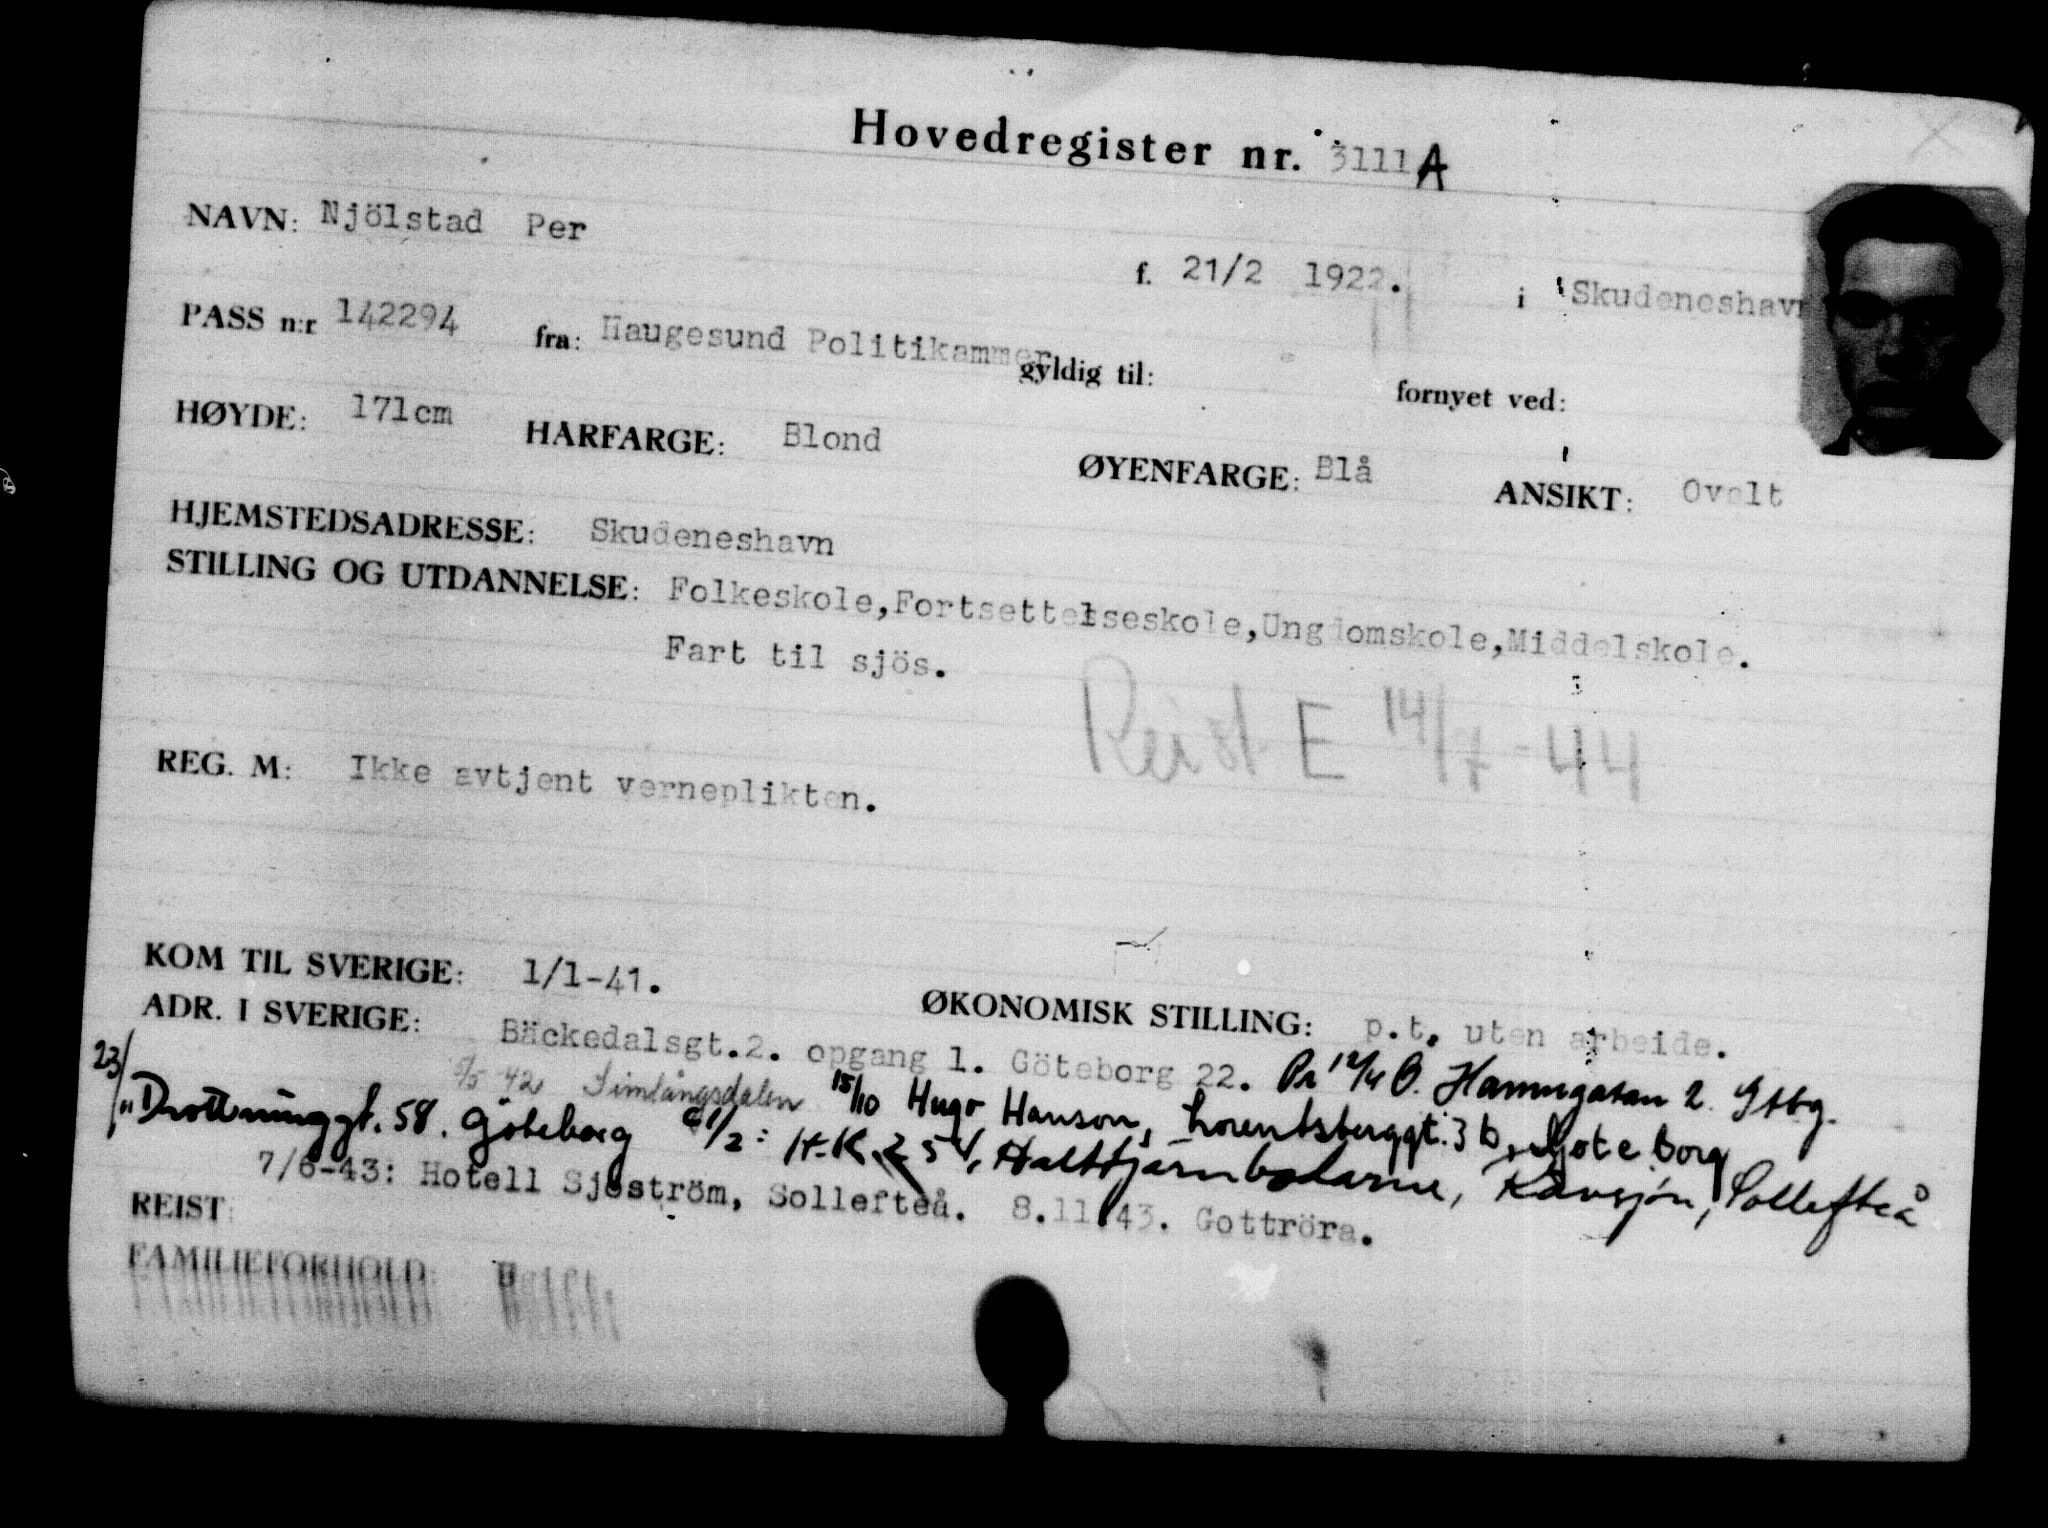 Hovedregister nr. 3111 A
NAVN: Njölstad Per f. 21/2 1922. i Skudeneshavn
PASS n:r 142294 fra: Haugesund Politikammer gyldig til: fornyet ved:
HØYDE: 171cm HARFARGE: Blond ØYENFARGE: Blå ANSIKT: Ovalt
HJEMSTEDSADRESSE: Skudeneshavn
STILLING OG UTDANNELSE: Folkeskole,Fortsettelseskole,Ungdomskole,Middelskole.
Fart til sjös.
Reist E 14/7-44
REG. M: Ikke avtjent verneplikten.
KOM TIL SVERIGE: 1/1-41. ØKONOMISK STILLING: p.t. uten arbeide.
ADR. I SVERIGE: Bäckedalsgt.2. opgang 1. Göteborg 22. Pr 12/4 Ö. Hamngatan 2. Gtbg.
5/5 42 Simlångsdalen 15/10 Hugo Hanson, Lorentsberggt. 3 b, Göteborg
23/11 Drottninggt. 58. Göteborg 1/2: Kåvsjön, Sollefteå
7/6-43: Hotell Sjöström, Sollefteå. 8.11.43. Gottröra.
REIST:
FAMILIEFORHOLD: